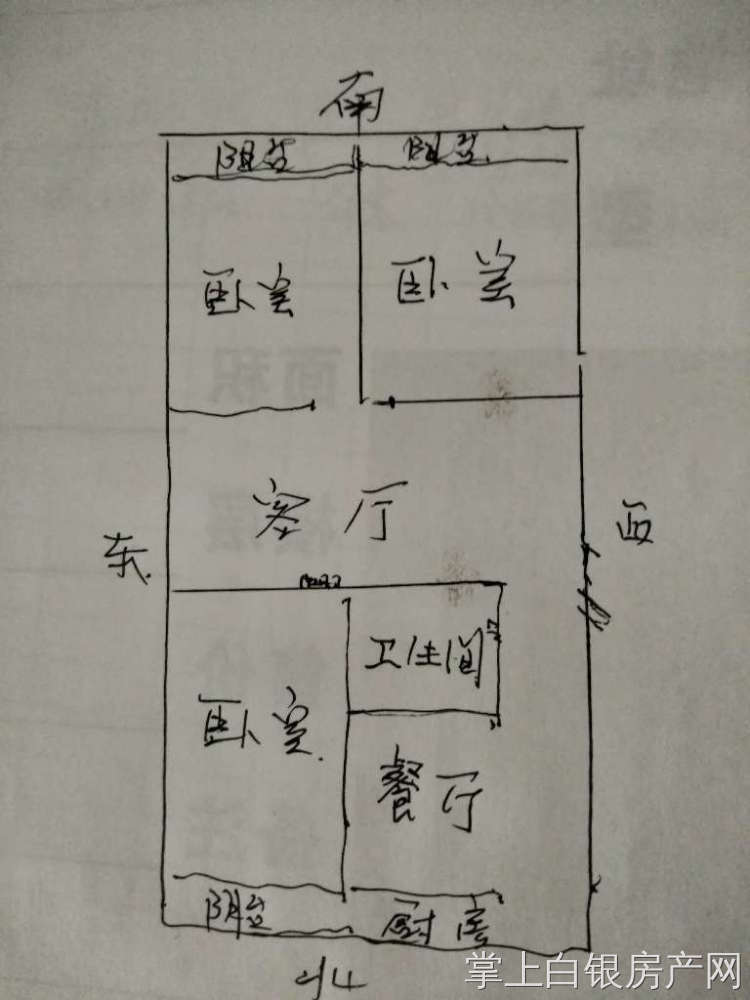 南
阳台 阳台
卧室 卧室
客厅
东
西
卫生间
卧室
餐厅
阳台 厨房
北
掌上白银房产网